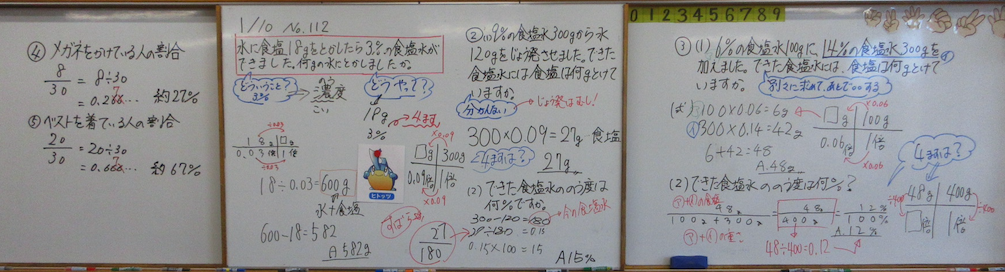 ④ メガネをかけている人の割合
8/30 = 8÷30
= 0.266… 約27%
⑤ ベストを着ている人の割合
20/30 = 20÷30
= 0.666… 約67%
1/10 No.112
水に食塩18gをとかしたら3%の食塩水が
できました。何gの水にとかしましたか。
どういうこと?
3%
のう
濃度
こい
どうやって?
18g
3%
4ます
÷0.03
18g □g
0.03倍 1倍
÷0.03
18÷0.03=600g
水+食塩
600-18=582
A 582g
ヒトッツ
② (1) 9%の食塩水300gから水
120gをじょう発させました。できた
食塩水には食塩は何gとけて
いますか。
分かんない
じょう発はむし!
×0.09
□g 300g
0.09倍 1倍
×0.09
300×0.09=27g 食塩
4ますは?
27g
(2) できた食塩水ののう度は
何%ですか。
300-120=180
今の食塩水
27÷180=0.15
0.15×100=15
A 15%
27/180
0 1 2 3 4 5 6 7 8 9
③ (1) 6%の食塩水100gに、14%の食塩水300gを
加えました。できた食塩水には、食塩は何gとけて
いますか。
別々に求めて、あとでする
100×0.06=6g
300×0.14=42g
6+42=48
A. 48g
×0.06
□g 100g
0.06倍 1倍
×0.06
4ますは?
(2) できた食塩水ののう度は何%?
の食塩
48g/100g+300g = 48g/400g = 12%/100%
A. 12%
48÷400=0.12
48g 400g
÷400
□倍 1倍
÷400